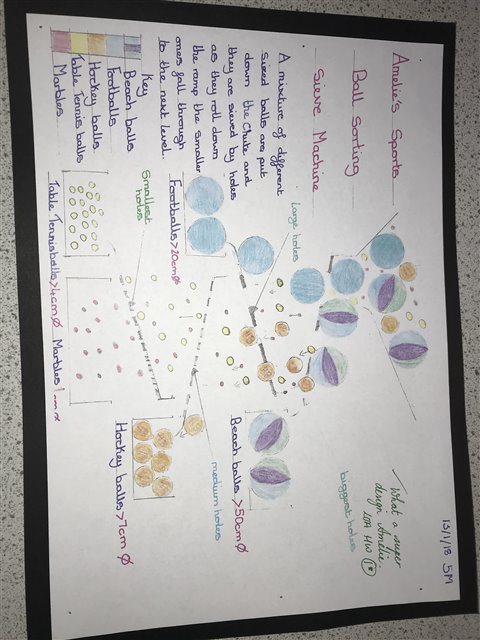 13/1/18 5M
Amelie's Sports
Ball Sorting
Sieve Machine
What a super
design Amelie.
A mixture of different
sized balls are put
down the Chute and
they are sieved by holes
as they roll down
the ramp the smaller
ones fall through
to the next level.
biggest holes
Large holes
Beach balls >50cm Ø
Footballs >20cm Ø
medium holes
Smallest
holes
Hockey balls >7cm Ø
Key
Beach balls
Footballs
Hockey balls
Table Tennis balls
Marbles
Table Tennis balls >4cm Ø
Marbles 1cm Ø